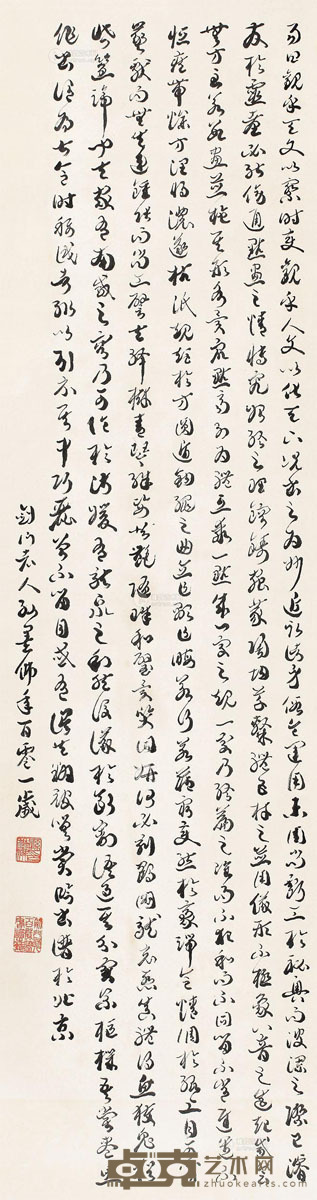 易曰觀乎天文以察時變觀乎人文以化成天下況書之為妙近取諸身假令運用未周尚虧工於秘奧而波瀾之際已濬
發於靈臺必能傍通點畫之情博究始終之理鎔鑄蟲篆陶均草隸體五材之並用儀形不極象八音之迭起感會
無方至若數畫並施其形各異眾點齊列為體互乖一點成一字之規一字乃終篇之準違而不犯和而不同留不常遲遣不
恒疾帶燥方潤將濃遂枯泯規矩於方圓遁鉤繩之曲直乍顯乍晦若行若藏窮變態於毫端合情調於紙上自可背
羲獻而無失違鍾張而尚工譬夫絳樹青琴殊姿共豔隋珠和璧異質同妍何必刻鶴圖龍竟慚真體得魚獲兔猶
吝筌蹄聞夫家有南威之容乃可論於淑媛有龍泉之利然後議於斷割語過其分實累樞機吾嘗盡思
作書謂為甚合時稱識者輒以引示其中巧麗曾不留目或有誤失翻被嗟賞臨書譜於北京
劍門老人孫墨佛年百零一歲
卓克艺术网
zhuokearts.com